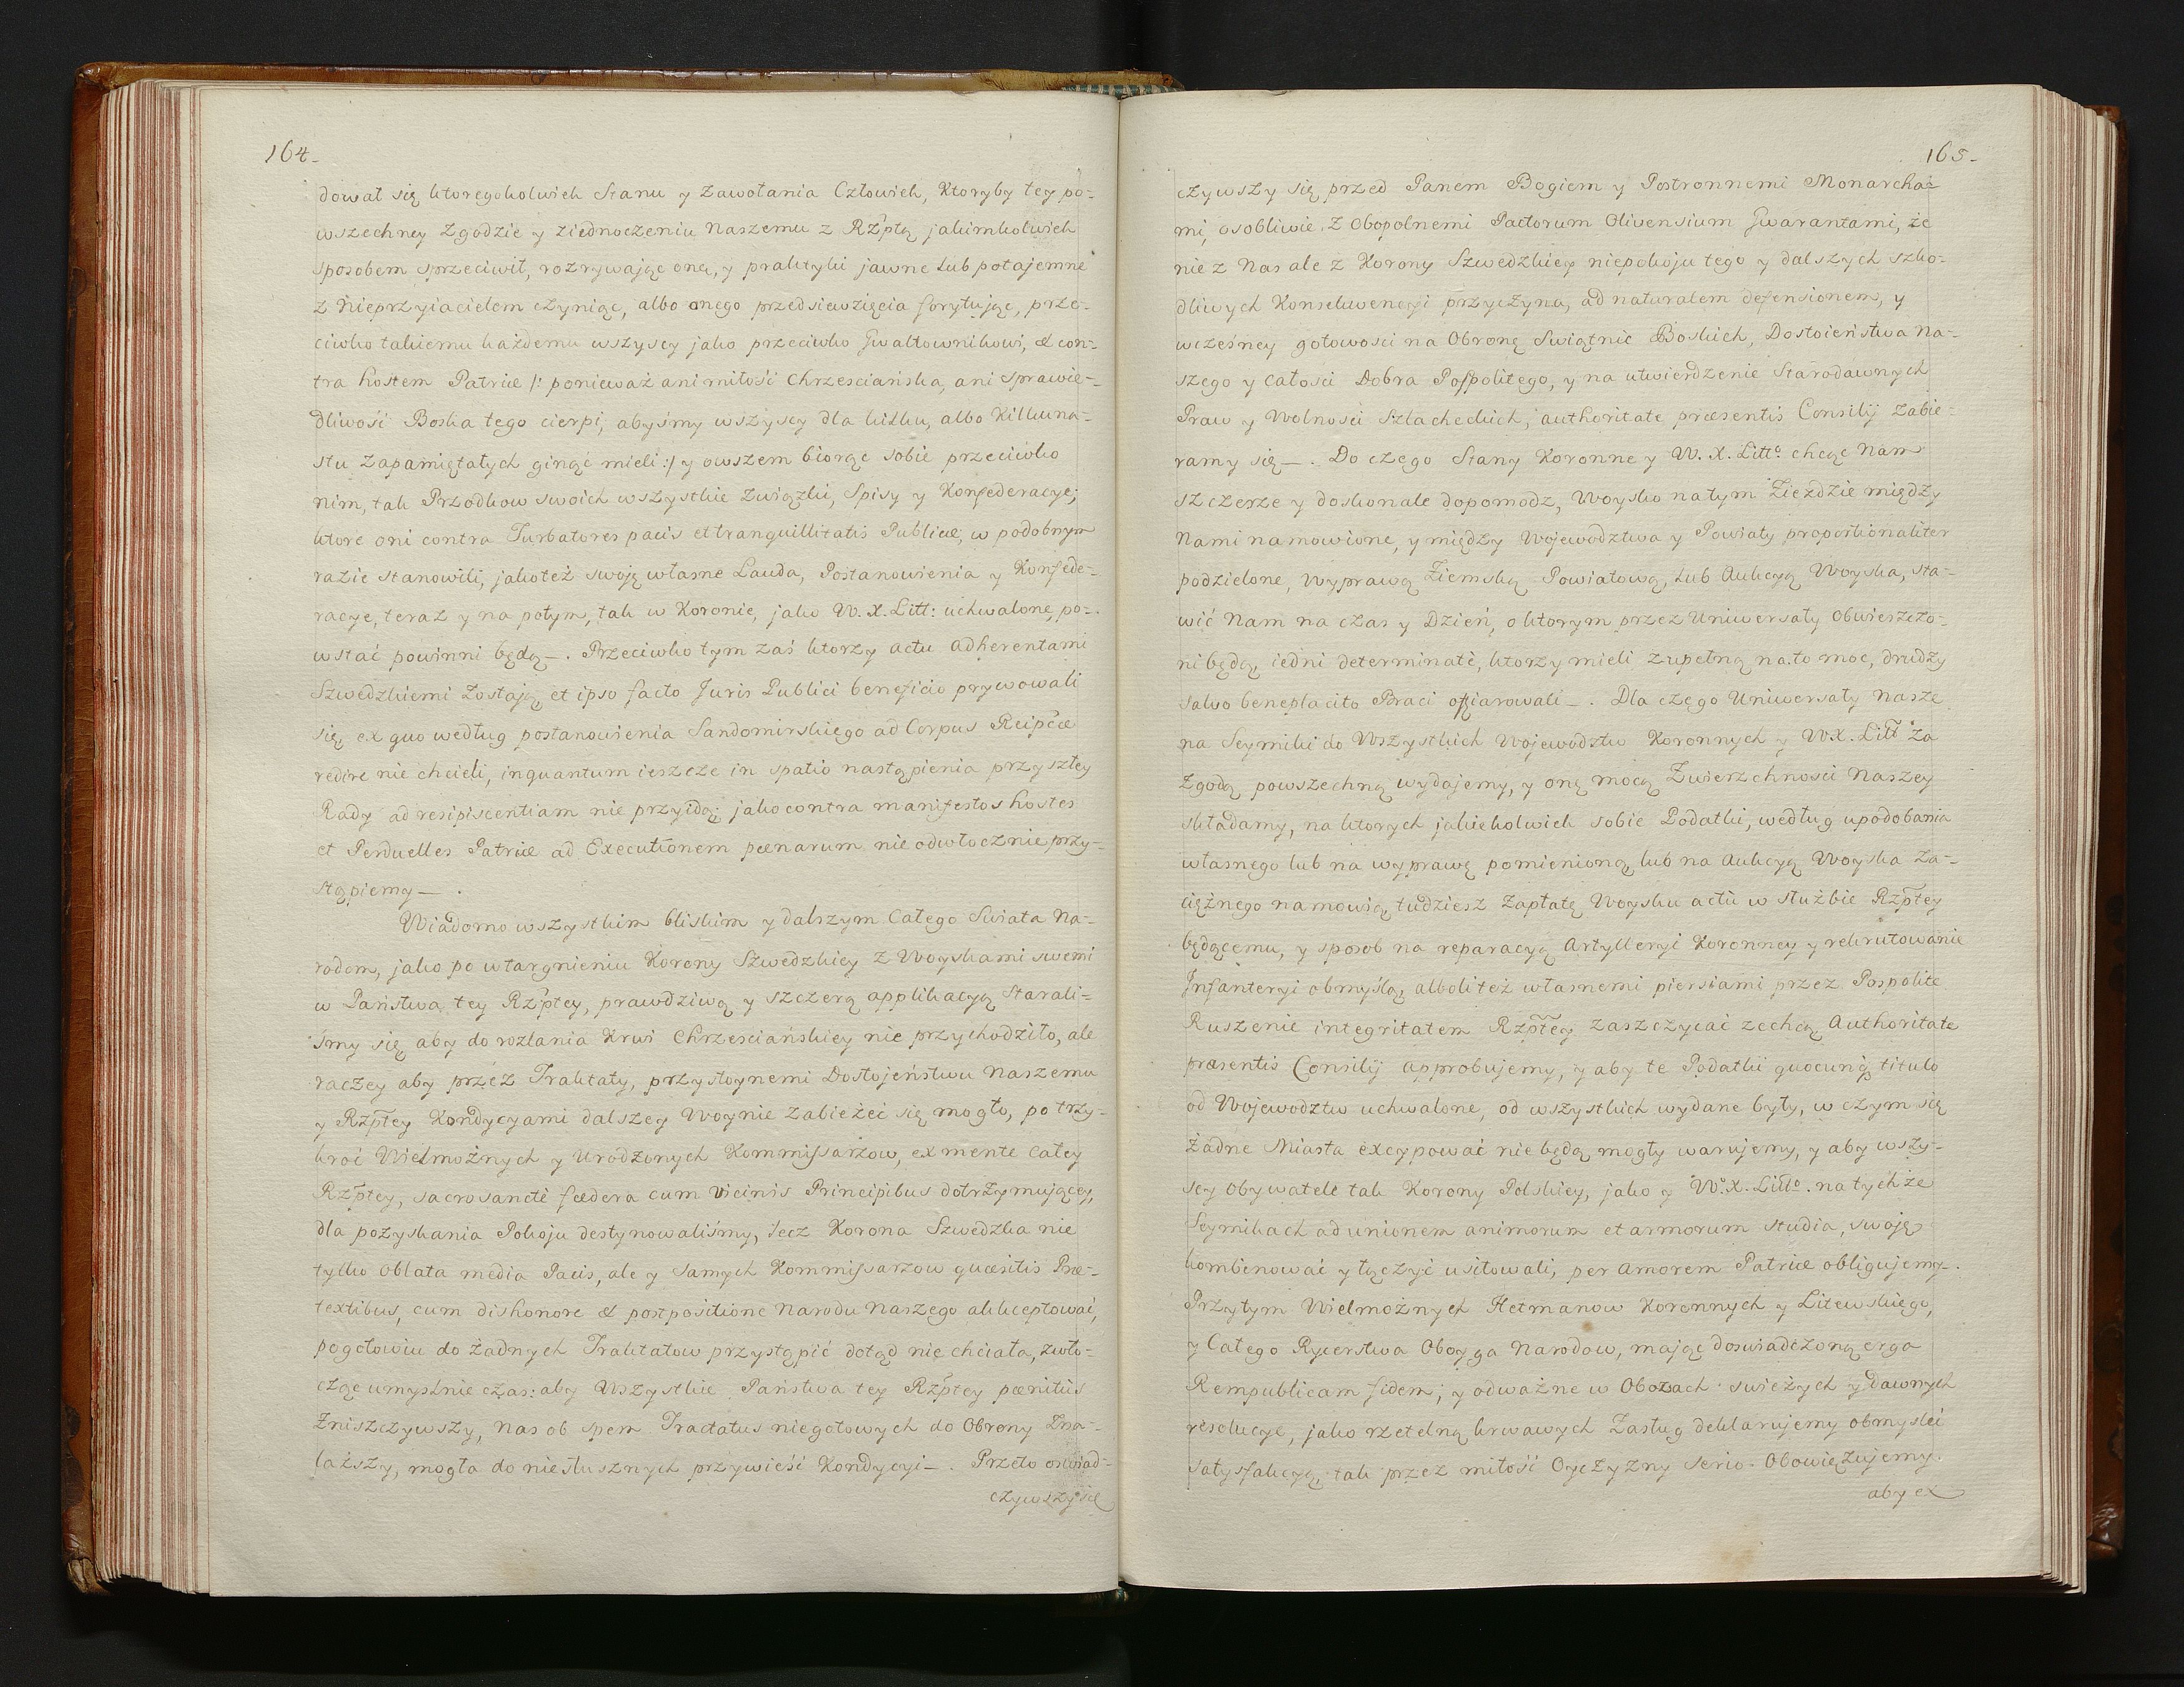 164.
dował się ktoregokolwiek Stanu y Zawołania Człowiek, Ktoryby tey po=
wszechney Zgodzie y ziednoczeniu Naszemu z Rzptą jakimkolwiek
sposobem sprzeciwił, rozrywając onę, y praktyki jawne lub potajemne
z Nieprzyiacielem czyniąc, albo onego przedsiewzięcia forytując, prze=
ciwko takiemu każdemu wszyscy jako przeciwko Gwałtownikowi, & con=
tra hostem Patriæ /: ponieważ ani miłość Chrzesciańska, ani Sprawie=
dliwość Boska tego cierpi, abyśmy wszyscy dla kilku, albo Kilkuna=
stu Zapamiętałych ginąć mieli :/ y owszem biorąc sobie przeciwko
nim, tak Przodkow swoich wszystkie Związki, Spisy y Konfederacye;
ktore oni contra Turbatores pacis et tranquillitatis Publicæ, w podobnym
razie stanowili, jako też swoje własne Lauda, Postanowienia y Konfede=
racye, teraz y na potym, tak w Koronie, jako W. X. Litt: uchwalone, po=
wstać powinni będą —. Przeciwko tym zaś ktorzy actu Adherentami
Szwedzkiemi Zostają, et ipso facto Juris Publici beneficio prywowali
się, ex quo według postanowienia Sandomirskiego ad Corpus Reipcæ
redire nie chcieli, inquantum ieszcze in spatio nastąpienia przyszłey
Rady ad resipiscentiam nie przyidą; jako contra manifestos hostes
et Perduelles Patriæ ad Executionem pœnarum nieodwłocznie przy=
stąpiemy — .
Wiadomo wszystkim bliskim y dalszym Całego Swiata Na=
rodom, jako po wtargnieniu Korony Szwedzkiey Z Woyskami swemi
w Państwa tey Rzptey, prawdziwą y szczerą applikacyą Starali=
śmy się aby do rozlania Krwi Chrzesciańskiey nie przychodziło, ale
raczey aby przez Traktaty, przystoynemi Dostojeństwu Naszemu
y Rzptey Kondycyami dalszey Woynie Zabieżeć się mogło, po trzy=
kroć Wielmożnych y Urodzonych Kommissarzow, ex mente Całey
Rzptey, sacrosancté fœdera cum vicinis Principibus dotrzymującey,
dla pozyskania Pokoju destynowaliśmy, lecz Korona Szwedzka nie
tylko Oblata media Pacis, ale y Samych Kommissarzow quæsitis Præ=
textibus, cum dishonore & postpositione Narodu Naszego akkceptować,
pogotowiu do Żadnych Traktatow przystąpić dotąd nie chciała, zwło=
cząc umyślnie czas: aby Wszystkie Państwa tey Rzptey pœnitùs
Zniszczywszy, Nas ob spem Tractatus niegotowych do Obrony Zna=
lazszy, mogła do niesłusznych przywieść Kondycyi —. Przeto oswiad=
czywszy się
165.
czywszy się przed Panem Bogiem y Postronnemi Monarcha=
mi, osobliwie Z Obopolnemi Pactorum Olivensium Gwarantami, że
nie z Nas ale z Korony Szwedzkiey niepokoju tego y dalszych szko=
dliwych Konsekwencyi przyczyna, ad naturalem defensionem, y
wcześney gotowosci na Obronę Swiątnic Boskich, Dostoieństwa Na=
szego y Całosci Dobra Pospolitego, y na utwierdzenie Starodawnych
Praw y Wolnosci Szlacheckich, authoritate præsentis Consilij Zabie=
ramy się —. Do czego Stany Koronne y W. X. Litto. chcąc Nam
szczerze y doskonale dopomodz, Woysko na tym Zieździe między
Nami namowione, y między Wojewodztwa y Powiaty proportionaliter
podzielone, Wyprawą Ziemską Powiatową, lub Aukcyą Woyska, sta=
wić Nam na czas y Dzień, o ktorym przez Uniwersały Obwieszczo=
ni będą, iedni determinatè, ktorzy mieli zupełną na to moc, drudzy
salvo beneplacito Braci ofiarowali —. Dla czego Uniwersały Nasze
na Seymiki do Wszystkich Wojewodztw Koronnych y W.X. Litt Za
Zgodą powszechną wydajemy, y onę mocą Zwierzchnosci Naszey
składamy, na ktorych jakiekolwiek sobie Podatki, według upodobania
własnego lub na wyprawę pomienioną, lub na Aukcyą Woyska Za=
ciężnego namowią, tudziesz Zapłatę Woysku actù w służbie Rzptey
będącemu, y sposob na reparacyą Artylleryi Koronney y rekrutowanie
Infanteryi obmyslą, alboli też własnemi piersiami przez Pospolite
Ruszenie integritatem Rzptey zaszczycać zechcą, Authoritate
præsentis Consilij approbujemy, y aby te Podatki quocunq, titulo
od Wojewodztw uchwalone, od wszystkich wydane były, w czym się
żadne Miasta excypować nie będą mogły warujemy, y aby wszy=
scy Obywatele tak Korony Polskiey, jako y W. X. Litto. na tychże
Seymikach ad unionem animorum et armorum studia, swoje
kombinować y łączyć usiłowali, per Amorem Patriæ obligujemy.
Przytym Wielmożnych Hetmanow Koronnych y Litewskiego,
y Całego Rycerstwa Oboyga Narodow, mając doswiadczoną erga
Rempublicam fidem; y odważne w Obozach swieżych y dawnych
resolucye, jako rzetelną krwawych Zasług deklarujemy obmyslić
satysfakcyę, tak przez miłość Oyczyzny serio Obowiązujemy.
aby ex